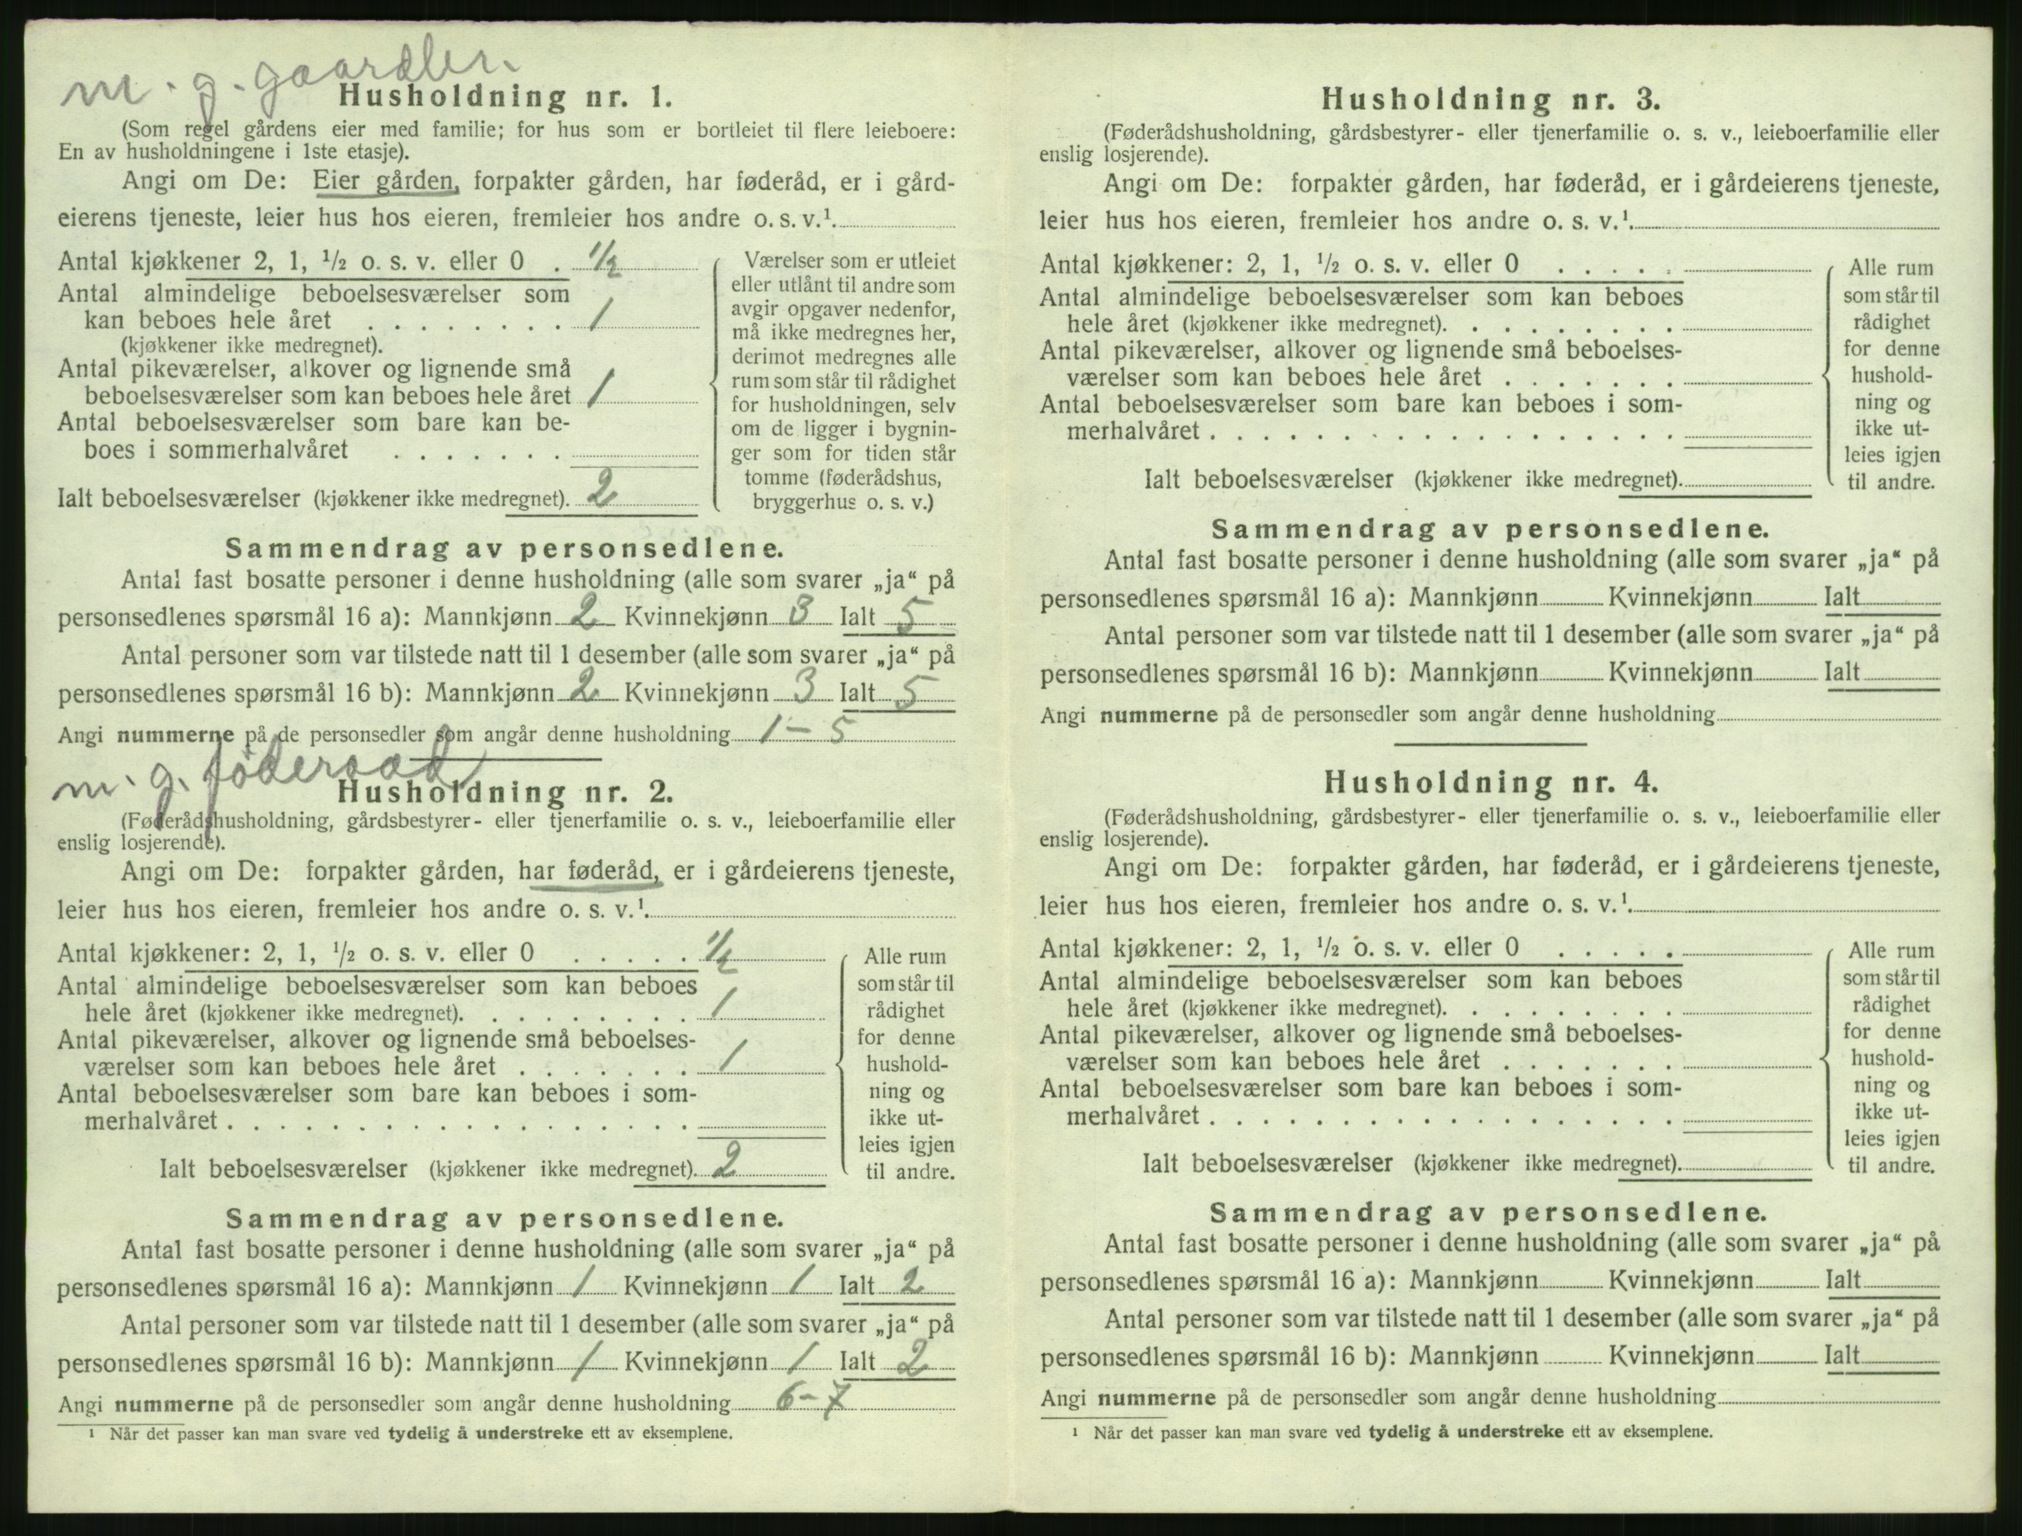 m. g. gaardbr.
Husholdning nr. 1.
(Som regel gårdens eier med familie; for hus som er bortleiet til flere leieboere:
En av husholdningene i 1ste etasje).
Angi om De: Eier gården, forpakter gården, har føderåd, er i gård-
eierens tjeneste, leier hus hos eieren, fremleier hos andre o. s. v.¹.
Antal kjøkkener 2, 1, ½ o. s. v. eller 0 . ½
Antal almindelige beboelsesværelser som
kan beboes hele året . . . . . . . . 1
(kjøkkener ikke medregnet).
Antal pikeværelser, alkover og lignende små
beboelsesværelser som kan beboes hele året 1
Antal beboelsesværelser som bare kan be-
boes i sommerhalvåret . . . . . . .
Ialt beboelsesværelser (kjøkkener ikke medregnet). 2
Værelser som er utleiet
eller utlånt til andre som
avgir opgaver nedenfor,
må ikke medregnes her,
derimot medregnes alle
rum som står til rådighet
for husholdningen, selv
om de ligger i bygnin-
ger som for tiden står
tomme (føderådshus,
bryggerhus o. s. v.)
Sammendrag av personsedlene.
Antal fast bosatte personer i denne husholdning (alle som svarer „ja“ på
personsedlenes spørsmål 16 a): Mannkjønn 2 Kvinnekjønn 3 Ialt 5
Antal personer som var tilstede natt til 1 desember (alle som svarer „ja“ på
personsedlenes spørsmål 16 b): Mannkjønn 2 Kvinnekjønn 3 Ialt 5
Angi nummerne på de personsedler som angår denne husholdning 1 - 5
m. g. føderaad
Husholdning nr. 2.
(Føderådshusholdning, gårdsbestyrer- eller tjenerfamilie o. s. v., leieboerfamilie eller
enslig losjerende).
Angi om De: forpakter gården, har føderåd, er i gårdeierens tjeneste,
leier hus hos eieren, fremleier hos andre o. s. v.¹.
Antal kjøkkener: 2, 1, ½ o. s. v. eller 0 . . . . . ½
Antal almindelige beboelsesværelser som kan beboes
hele året (kjøkkener ikke medregnet). . . . . . . . . 1
Antal pikeværelser, alkover og lignende små beboelses-
værelser som kan beboes hele året . . . . . . . 1
Antal beboelsesværelser som bare kan beboes i som-
merhalvåret . . . . . . . . . . . . . . . . . .
Ialt beboelsesværelser (kjøkkener ikke medregnet). 2
Alle rum
som står til
rådighet
for denne
hushold-
ning og
ikke ut-
leies igjen
til andre.
Sammendrag av personsedlene.
Antal fast bosatte personer i denne husholdning (alle som svarer „ja“ på
personsedlenes spørsmål 16 a): Mannkjønn 1 Kvinnekjønn 1 Ialt 2
Antal personer som var tilstede natt til 1 desember (alle som svarer „ja“ på
personsedlenes spørsmål 16 b): Mannkjønn 1 Kvinnekjønn 1 Ialt 2
Angi nummerne på de personsedler som angår denne husholdning 6-7
¹ Når det passer kan man svare ved tydelig å understreke ett av eksemplene.
Husholdning nr. 3.
(Føderådshusholdning, gårdsbestyrer- eller tjenerfamilie o. s. v., leieboerfamilie eller
enslig losjerende).
Angi om De: forpakter gården, har føderåd, er i gårdeierens tjeneste,
leier hus hos eieren, fremleier hos andre o. s. v.¹.
Antal kjøkkener: 2, 1, ½ o. s. v. eller 0 . . . . .
Antal almindelige beboelsesværelser som kan beboes
hele året (kjøkkener ikke medregnet). . . . . . . . .
Antal pikeværelser, alkover og lignende små beboelses-
værelser som kan beboes hele året . . . . . . .
Antal beboelsesværelser som bare kan beboes i som-
merhalvåret . . . . . . . . . . . . . . . . . .
Ialt beboelsesværelser (kjøkkener ikke medregnet).
Alle rum
som står til
rådighet
for denne
hushold-
ning og
ikke ut-
leies igjen
til andre.
Sammendrag av personsedlene.
Antal fast bosatte personer i denne husholdning (alle som svarer „ja“ på
personsedlenes spørsmål 16 a): Mannkjønn Kvinnekjønn Ialt
Antal personer som var tilstede natt til 1 desember (alle som svarer „ja“ på
personsedlenes spørsmål 16 b): Mannkjønn Kvinnekjønn Ialt
Angi nummerne på de personsedler som angår denne husholdning
Husholdning nr. 4.
(Føderådshusholdning, gårdsbestyrer- eller tjenerfamilie o. s. v., leieboerfamilie eller
enslig losjerende).
Angi om De: forpakter gården, har føderåd, er i gårdeierens tjeneste,
leier hus hos eieren, fremleier hos andre o. s. v.¹.
Antal kjøkkener: 2, 1, ½ o. s. v. eller 0 . . . . .
Antal almindelige beboelsesværelser som kan beboes
hele året (kjøkkener ikke medregnet). . . . . . . . .
Antal pikeværelser, alkover og lignende små beboelses-
værelser som kan beboes hele året . . . . . . .
Antal beboelsesværelser som bare kan beboes i som-
merhalvåret . . . . . . . . . . . . . . . . . .
Ialt beboelsesværelser (kjøkkener ikke medregnet).
Alle rum
som står til
rådighet
for denne
hushold-
ning og
ikke ut-
leies igjen
til andre.
Sammendrag av personsedlene.
Antal fast bosatte personer i denne husholdning (alle som svarer „ja“ på
personsedlenes spørsmål 16 a): Mannkjønn Kvinnekjønn Ialt
Antal personer som var tilstede natt til 1 desember (alle som svarer „ja“ på
personsedlenes spørsmål 16 b): Mannkjønn Kvinnekjønn Ialt
Angi nummerne på de personsedler som angår denne husholdning
¹ Når det passer kan man svare ved tydelig å understreke ett av eksemplene.